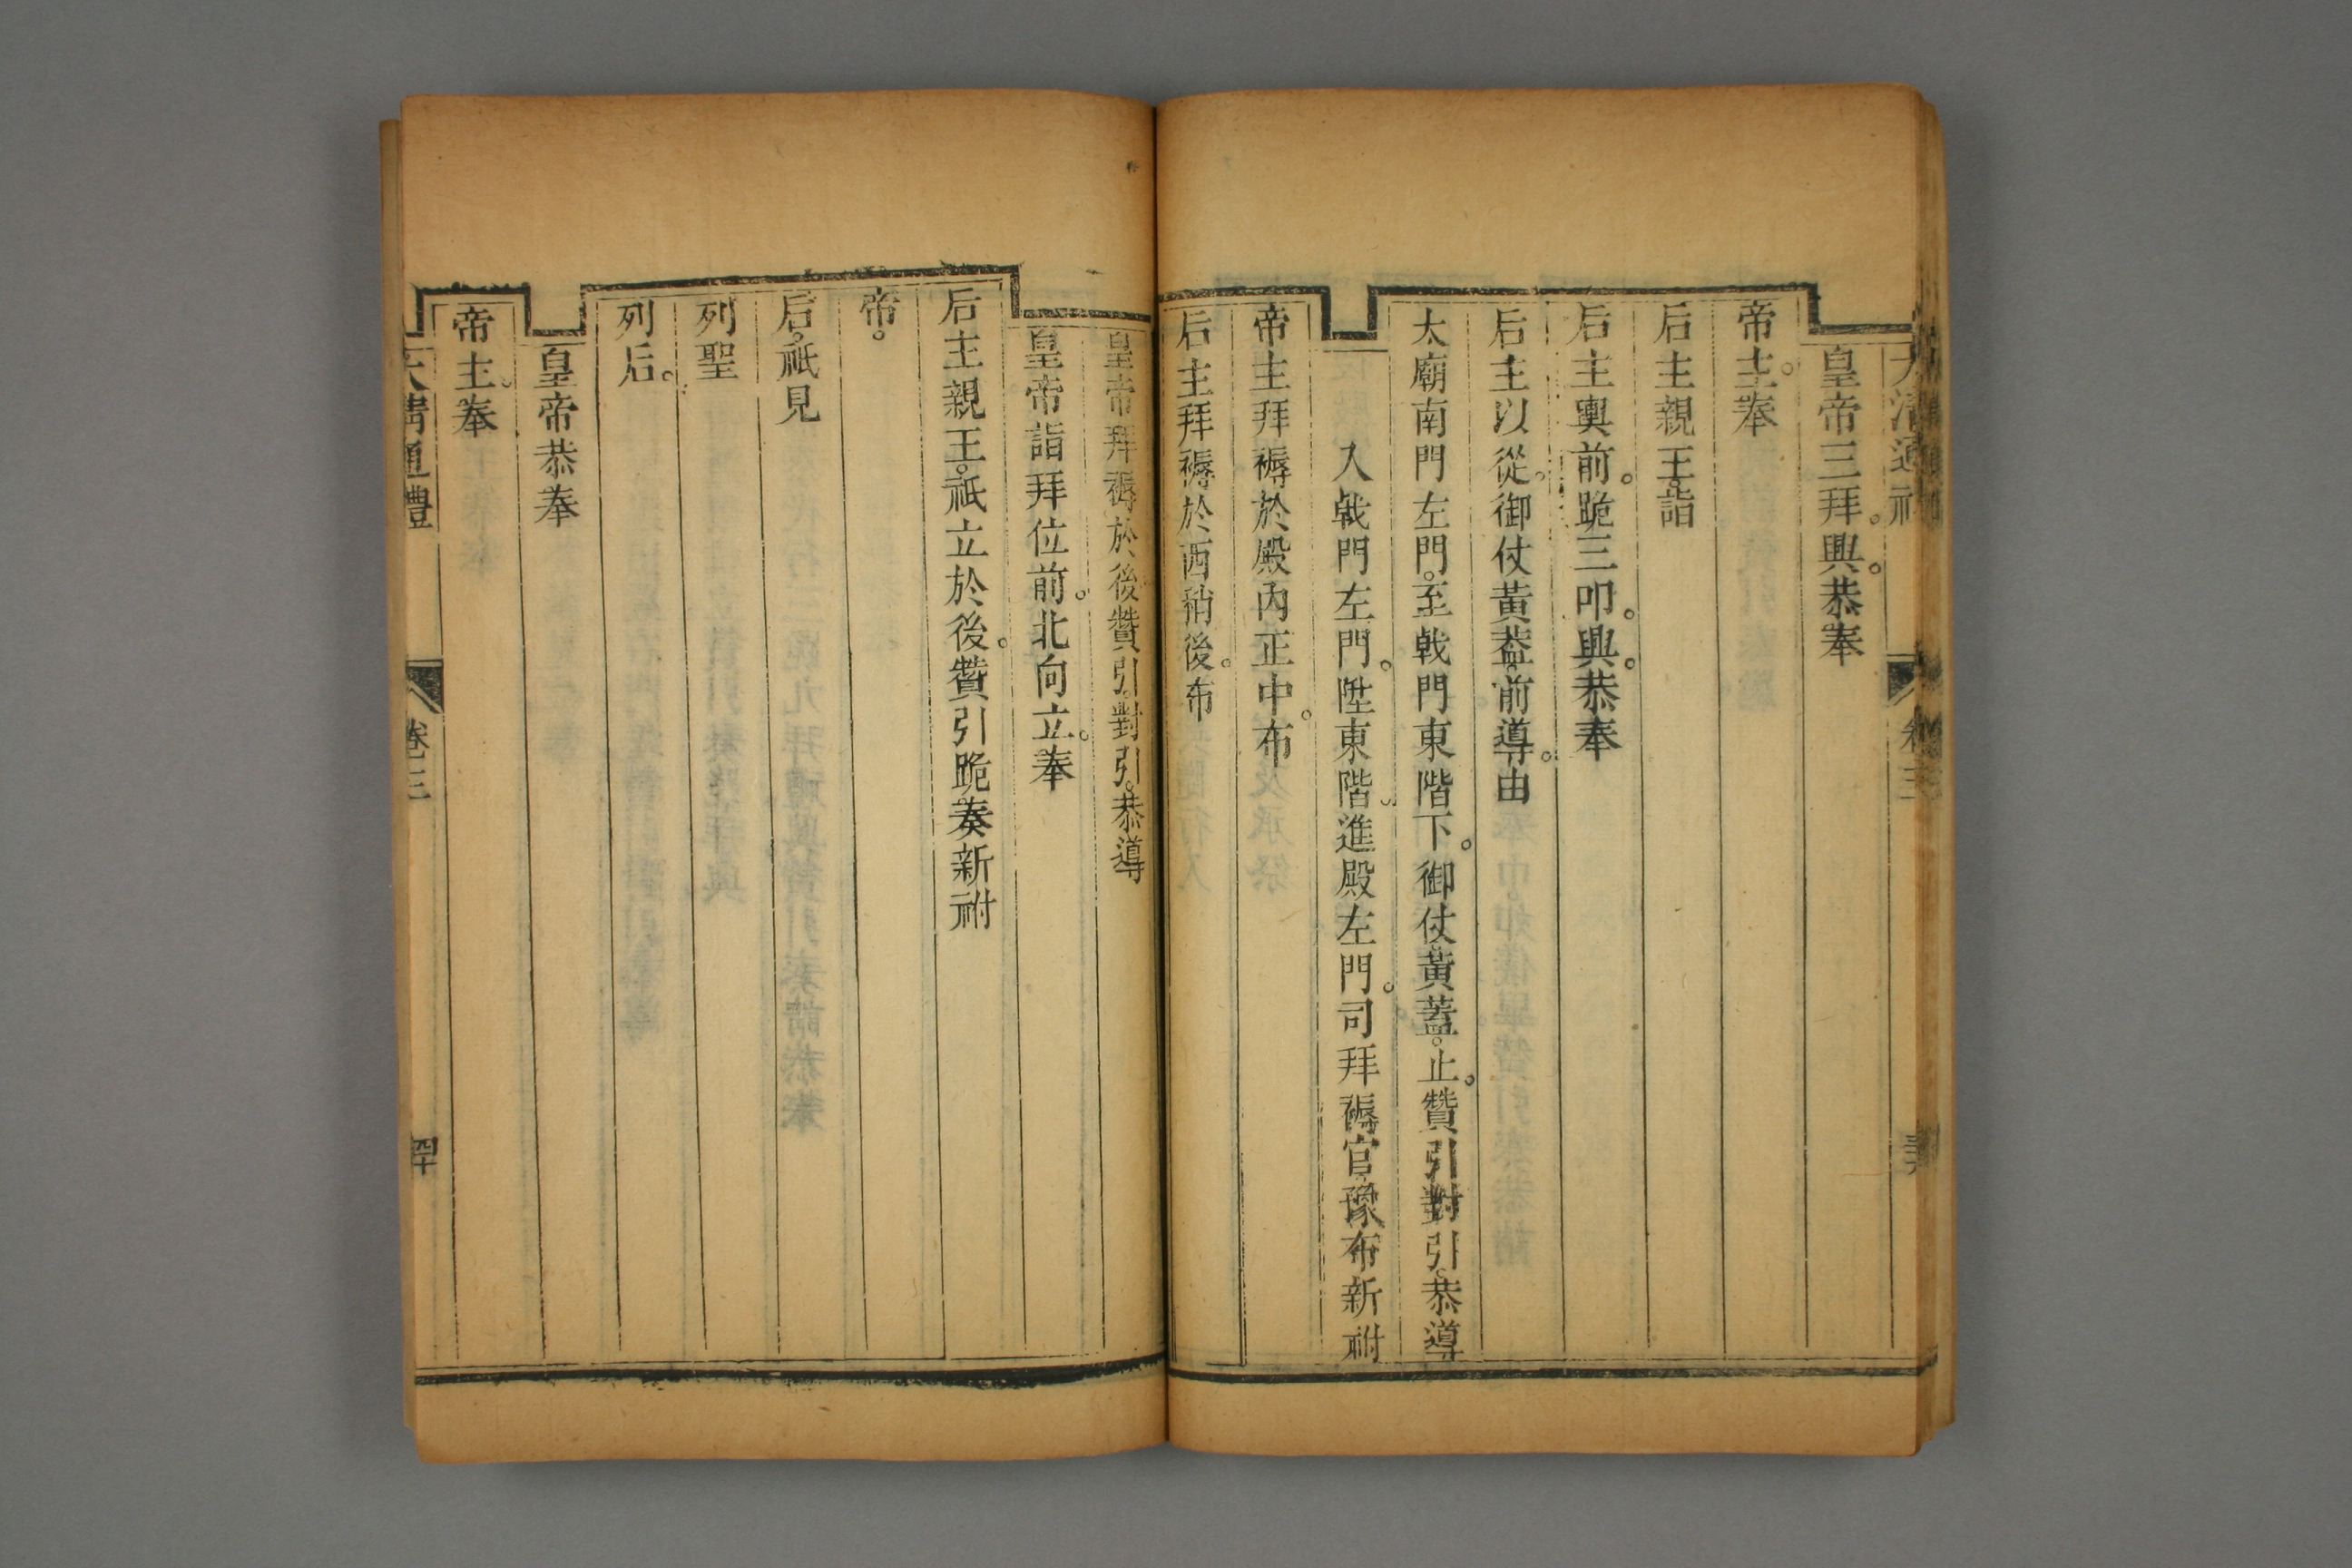 大清通禮 卷三
皇帝三拜。興。恭奉
帝主。奉
后主親王。詣
后主輿前。跪三叩。興。恭奉
后主以從。御仗黃葢。前導。由
太廟南門左門。至戟門東階下。御仗黃蓋。止。贊引對引。恭導
入戟門左門。陞東階。進殿左門。司拜褥官。豫布新祔
帝主拜褥於殿內正中。布
后主拜褥於西稍後。布
皇帝拜褥於後贊引。對引。恭導
皇帝詣拜位前。北向立。奉
后主親王。祇立於後。贊引跪奏新祔
帝。
后。祇見
列聖
列后。
皇帝恭奉
帝主。奉
大清通禮 卷三 四十